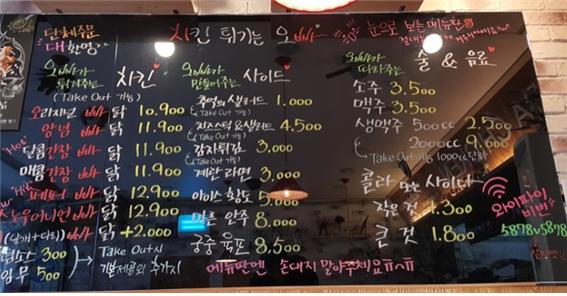 단체주문
대환영
치킨 튀기는 오빠
눈으로 보는 메뉴판
오빠가
튀겨주는 치킨
(Take Out 가능)
오리지널 빠닭 10.900
양념 빠닭 11.900
달콤간장 빠닭 11.900
매콤간장 빠닭 11.900
페퍼 빠닭 12.900
스노우어니언 빠닭 12.900
(날개+다리) 빠닭 +2.000
소스 300
무 500
Take Out시
기본제공외 추가시
오빠가
만들어주는 사이드
(Take Out 가능)
추억의 샐러드 1.000
치즈스틱&샐러드 4.500
(Take Out 가능)
감자튀김 3,000
(Take Out 가능)
계란 라면 3,000
아이스 황도 5.000
마른 안주 8.000
궁중 육포 8,500
오빠가
따라주는 술 & 음료
소주 3.500
맥주 3.500
생맥주 500cc 2.500
2000cc 9.000
콜라 또는 사이다
작은것 1.300
큰 것 1.800
와이파이
비번
5878v5878
메뉴판엔 손대지 말아주세요ㅠㅅㅠ